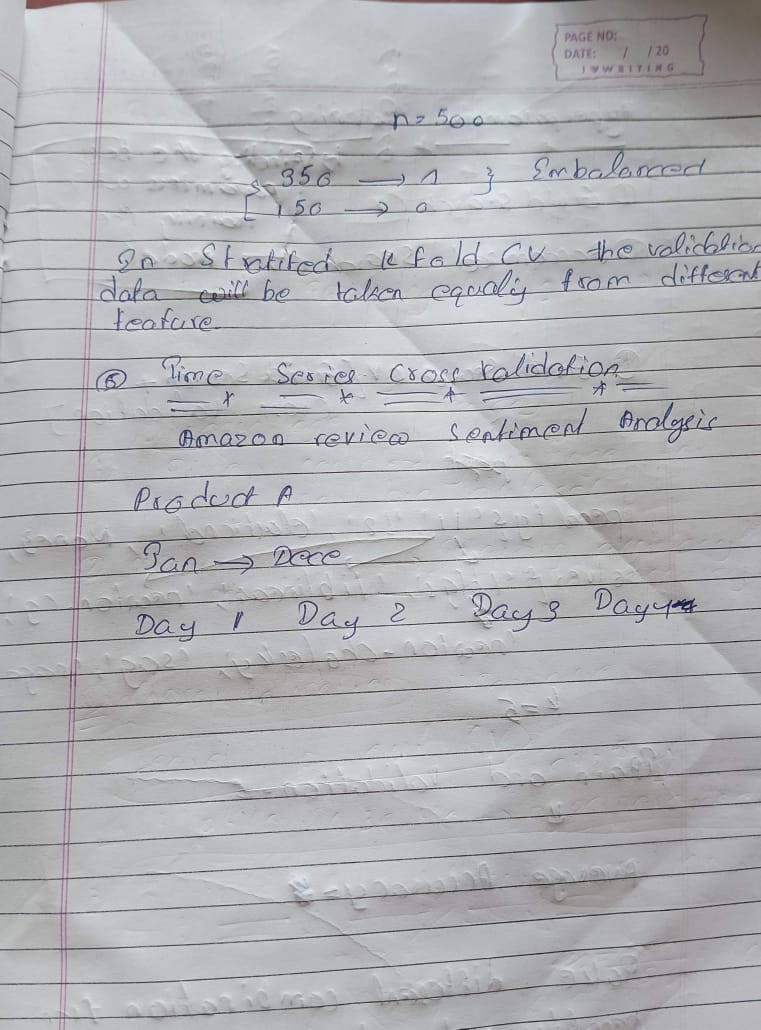 PAGE NO:
DATE: / /20
I ♥ WRITING
n = 500
350 → 1 } Imbalanced
150 → 0
In Stratifed k fold CV the validation
data will be taken equally from different
feature.
⑤ Time Series Cross Validation
Amazon review Sentiment Analysis
Product A
Jan → Dece
Day 1 Day 2 Day 3 Day 4